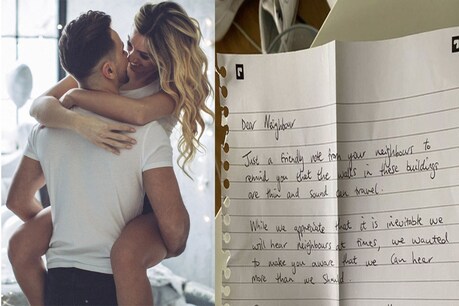 Dear Neighbour
Just a friendly note from your neighbours to
remind you that the walls in these buildings
are thin and sound can travel.
While we appreciate that it is inevitable we
will hear neighbours at times, we wanted
to make you aware that we can hear
more than we should